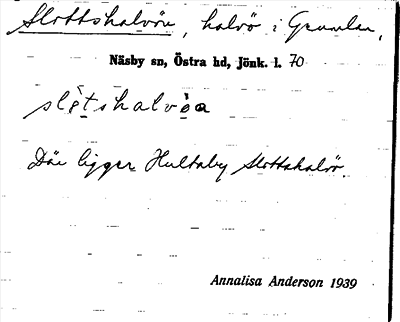 Slottshalvön, halvö i Grumlan,
Näsby sn, Östra hd, Jönk. l. 70
slètshalvèa
Där ligger Hultaby Slottshalvö.
Annalisa Anderson 1939